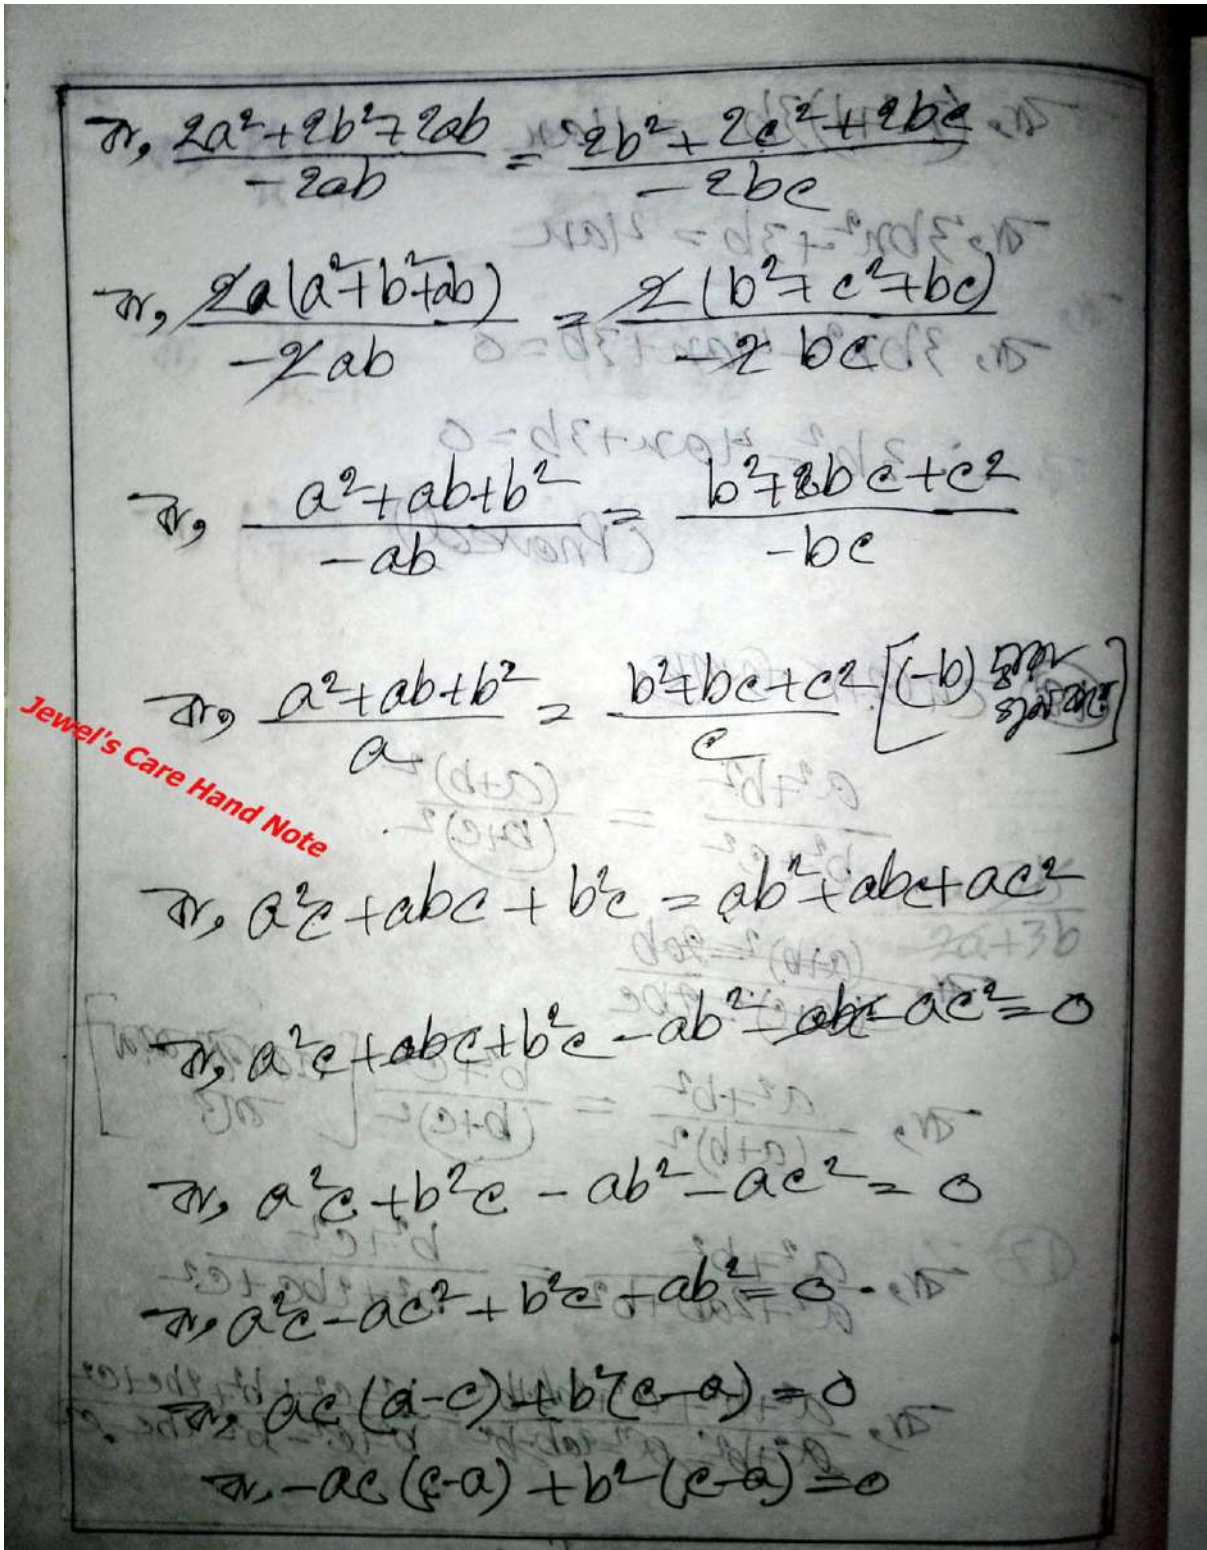 বা, 2a²+2b²+2ab / -2ab = 2b²+2c²+2bc / -2bc
বা, 2a(a²+b²+ab) / -2ab = 2(b²+c²+bc) / -2bc
বা, a²+ab+b² / -ab = b²+2bc+c² / -bc
বা, a²+ab+b² / a = b²+bc+c² / c [(-b) দ্বারা গুণ করে]
Jewel's Care Hand Note
বা, a²c+abc+b²c = ab²+abc+ac²
বা, a²c+abc+b²c-ab²-abc-ac²=0
বা, a²c+b²c-ab²-ac²=0
বা, a²c-ac²+b²c-ab²=0
বা, ac(a-c)+b²(c-a)=0
বা, -ac(c-a)+b²(c-a)=0